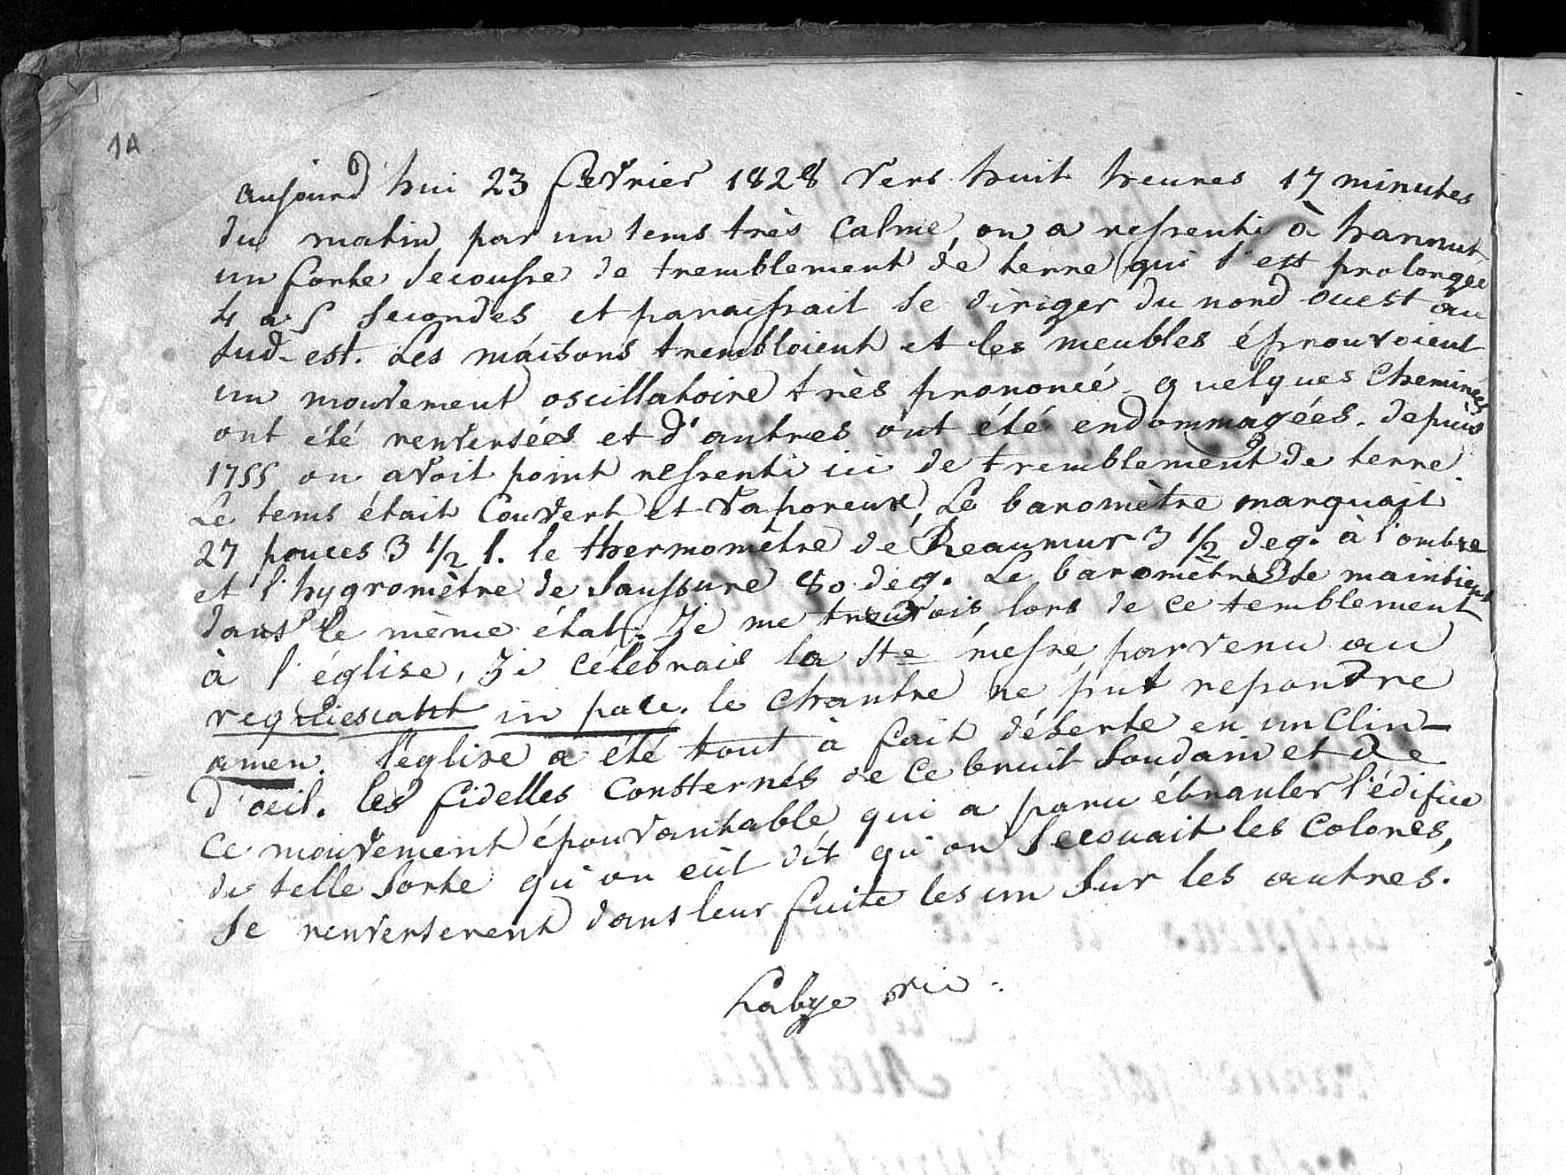 1A
aujourd'hui 23 fevrier 1828 vers huit heures 17 minutes
du matin par un tems très calme, on a ressenti à hannut
un forte secousse de tremblement de terre qui s'est prolongée
4 à 5 secondes et paraissait se diriger du nord ouest au
sud-est. Les maisons trembloient et les meubles éprouvoient
un mouvement oscillatoire très prononcé quelques cheminées
ont été renversées et d'autres ont été endommagées. depuis
1755 on avoit point ressenti ici de tremblement de terre.
Le tems était couvert et vaporeux, Le baromètre marquait
27 pouces 3 1/2 l. le thermomètre de Reaumur 3 1/2 deg. à l'ombre
et l'hygromètre de Saussure 80 deg. Le baromètre se maintient
dans le même état. Je me trouvois lors de ce temblement
à l'église, Je célebrais la Ste messe, parvenu au
requiescant in pace. le chantre ne put repondre
amen. l'église a été tout à fait déserte en un clin-
d'oeil. les fidelles consternés de ce bruit soudain et de
ce mouvement épouvantable qui a paru ébranler l'édifice
de telle sorte qu'on eût dit qu'on secouait les colones,
se renverserent dans leur fuite les un sur les autres.
Labye